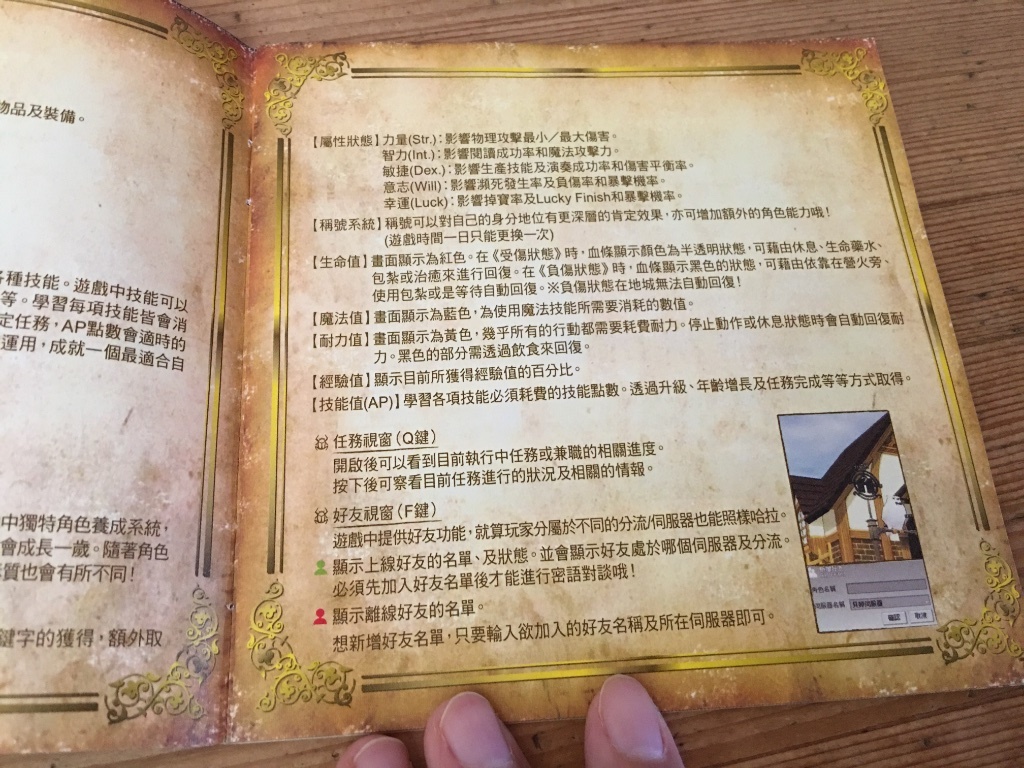 物品及裝備。
各種技能。遊戲中技能可以
等。學習每項技能皆會消
定任務，AP點數會適時的
運用，成就一個最適合自
中獨特角色養成系統，
會成長一歲。隨著角色
質也會有所不同！
鍵字的獲得，額外取
【屬性狀態】力量(Str.)：影響物理攻擊最小／最大傷害。
智力(Int.)：影響閱讀成功率和魔法攻擊力。
敏捷(Dex.)：影響生產技能及演奏成功率和傷害平衡率。
意志(Will)：影響瀕死發生率及負傷率和暴擊機率。
幸運(Luck)：影響掉寶率及Lucky Finish和暴擊機率。
【稱號系統】稱號可以對自己的身分地位有更深層的肯定效果，亦可增加額外的角色能力哦！
(遊戲時間一日只能更換一次)
【生命值】畫面顯示為紅色。在《受傷狀態》時，血條顯示顏色為半透明狀態，可藉由休息、生命藥水、
包紮或治癒來進行回復。在《負傷狀態》時，血條顯示黑色的狀態，可藉由依靠在營火旁、
使用包紮或是等待自動回復。※負傷狀態在地城無法自動回復！
【魔法值】畫面顯示為藍色，為使用魔法技能所需要消耗的數值。
【耐力值】畫面顯示為黃色，幾乎所有的行動都需要耗費耐力。停止動作或休息狀態時會自動回復耐
力。黑色的部分需透過飲食來回復。
【經驗值】顯示目前所獲得經驗值的百分比。
【技能值(AP)】學習各項技能必須耗費的技能點數。透過升級、年齡增長及任務完成等等方式取得。
任務視窗（Q鍵）
開啟後可以看到目前執行中任務或兼職的相關進度。
按下後可察看目前任務進行的狀況及相關的情報。
好友視窗（F鍵）
遊戲中提供好友功能，就算玩家分屬於不同的分流/伺服器也能照樣哈拉。
顯示上線好友的名單、及狀態。並會顯示好友處於哪個伺服器及分流。
必須先加入好友名單後才能進行密語對談哦！
顯示離線好友的名單。
想新增好友名單，只要輸入欲加入的好友名稱及所在伺服器即可。
角色名稱
伺服器名稱
確認 取消